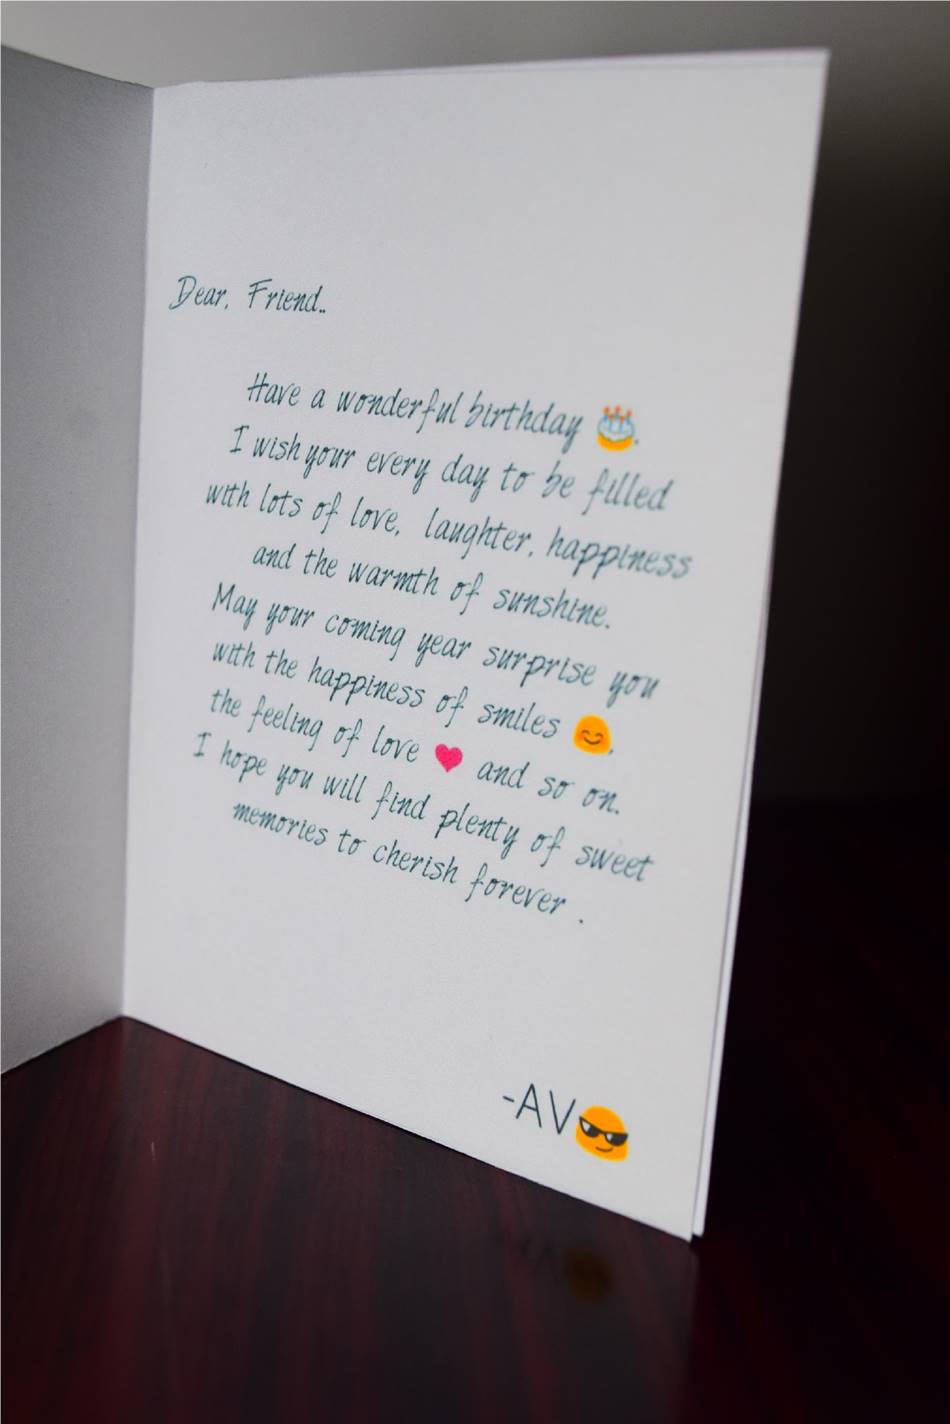 Dear, Friend..
Have a wonderful birthday 🎂.
I wish your every day to be filled
with lots of love, laughter, happiness
and the warmth of sunshine.
May your coming year surprise you
with the happiness of smiles 😊,
the feeling of love ❤️ and so on.
I hope you will find plenty of sweet
memories to cherish forever .
-AV😎